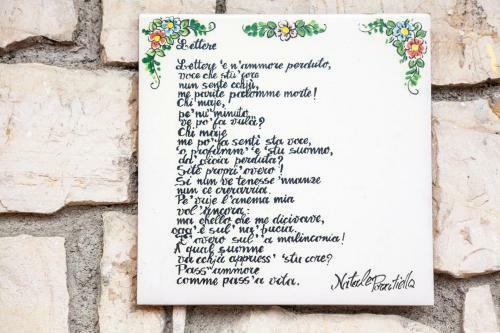 Lettere
Lettere 'e n'ammore perduto,
voce che stu core
nun sente cchiù,
me parite palomme morte!
Chi maje,
pe' nu minuto,
ve po' fa vulà?
Chi maje
me po' fa sentì sta voce,
'o profumm' 'e stu suonno,
da' gioia perduta?
Site propri' overo!
Si nun ve tenesse 'nnanze
nun ce crerarria.
Pe' vuje l'anema mia
vol' ancora:
ma chello che me dicivave,
ogg' è sul' na' bucia.
E' overo sul' 'a malinconia!
A qual suonne
va cchià appriess' 'stu core?
Pass' ammore
comme pass' a vita.
Natale